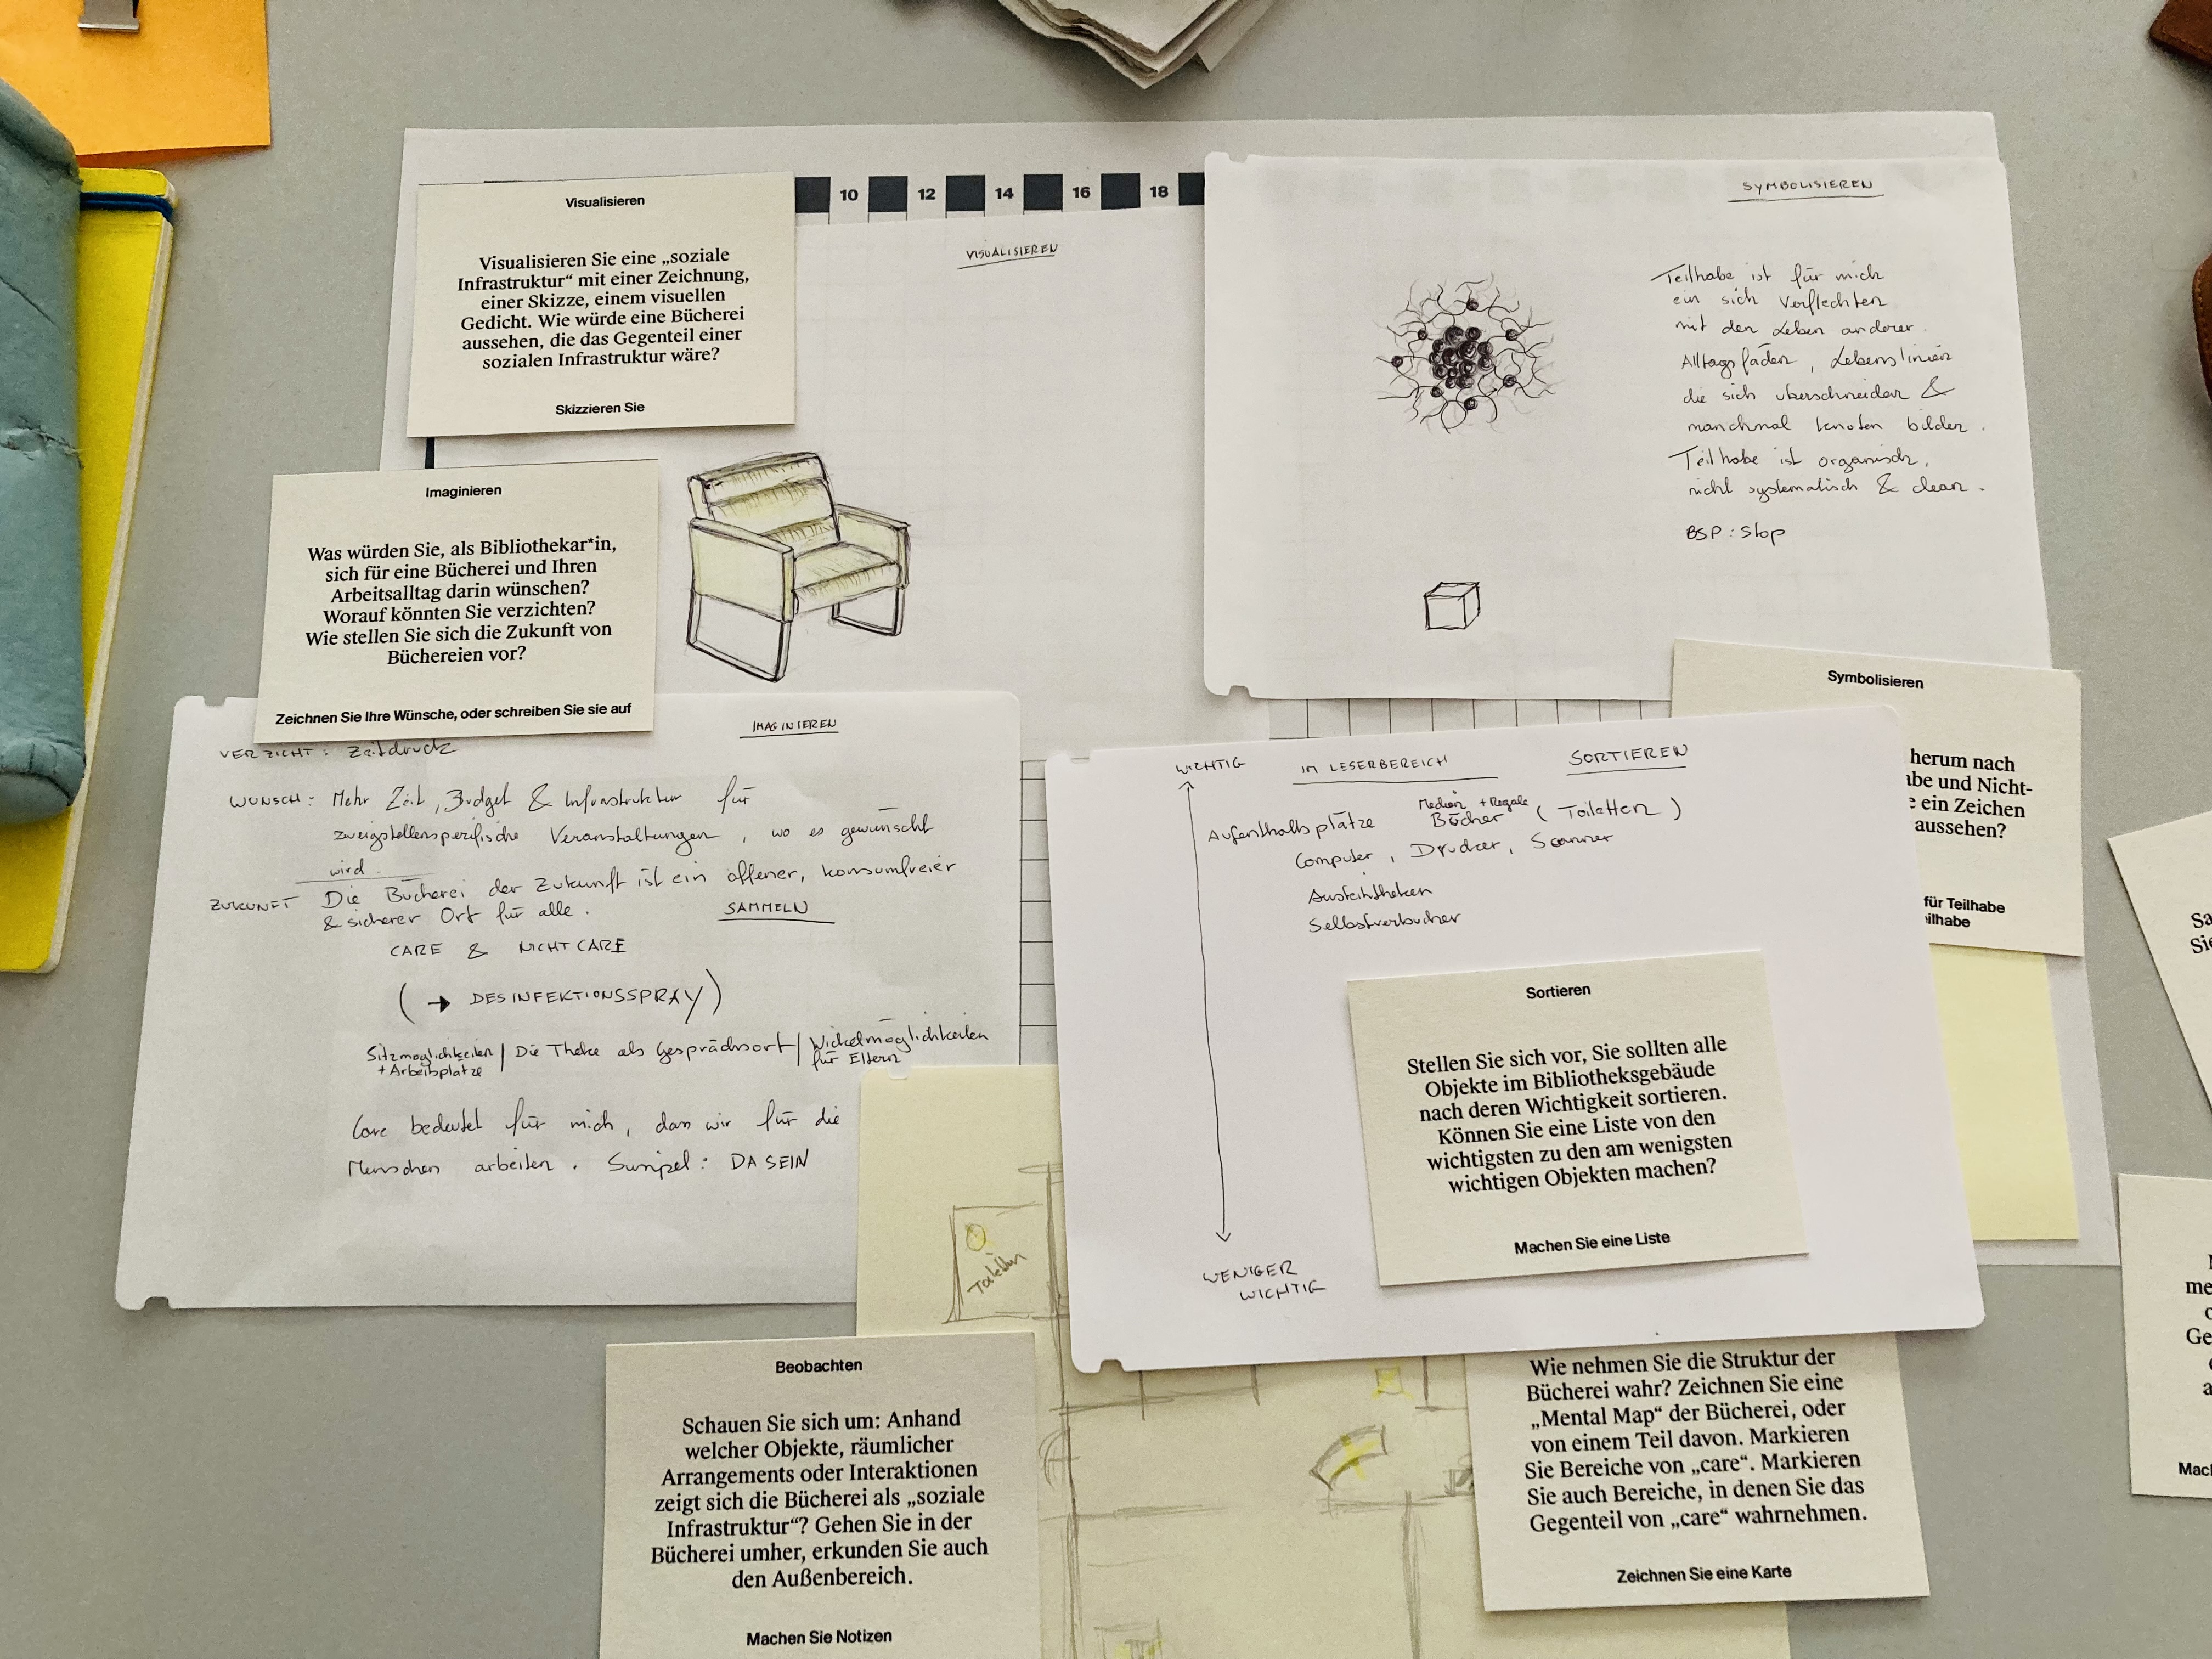 Visualisieren
Visualisieren Sie eine „soziale
Infrastruktur“ mit einer Zeichnung,
einer Skizze, einem visuellen
Gedicht. Wie würde eine Bücherei
aussehen, die das Gegenteil einer
sozialen Infrastruktur wäre?
Skizzieren Sie
10 12 14 16 18
VISUALISIEREN
SYMBOLISIEREN
Teilhabe ist für mich
ein sich verflechten
mit den Leben anderer.
Alltagsfäden, Lebenslinien
die sich überschneiden &
manchmal knoten bilden.
Teilhabe ist organisch,
nicht systematisch & clean.
BSP: Slop
Imaginieren
Was würden Sie, als Bibliothekar*in,
sich für eine Bücherei und Ihren
Arbeitsalltag darin wünschen?
Worauf könnten Sie verzichten?
Wie stellen Sie sich die Zukunft von
Büchereien vor?
Zeichnen Sie Ihre Wünsche, oder schreiben Sie sie auf
IMAGINIEREN
VERZICHT: Zeitdruck
WUNSCH: Mehr Zeit, Budget & Infrastruktur für
zweigstellenspezifische Veranstaltungen, wo es gewünscht
wird.
ZUKUNFT Die Bücherei der Zukunft ist ein offener, konsumfreier
& sicherer Ort für alle.
SAMMELN
CARE & NICHT CARE
(→ DESINFEKTIONSSPRAY)
Sitzmöglichkeiten | Die Theke als Gesprächsort | Wickelmöglichkeiten
+ Arbeitsplätze für Eltern
Care bedeutet für mich, dass wir für die
Menschen arbeiten. Simpel: DA SEIN
Symbolisieren
herum nach
abe und Nicht-
e ein Zeichen
aussehen?
für Teilhabe
eilhabe
WICHTIG IM LESERBEREICH SORTIEREN
Medien + Regale
Aufenthaltsplätze Bücher (Toiletten)
Computer, Drucker, Scanner
Ausleihtheken
Selbstverbucher
WENIGER
WICHTIG
Sortieren
Stellen Sie sich vor, Sie sollten alle
Objekte im Bibliotheksgebäude
nach deren Wichtigkeit sortieren.
Können Sie eine Liste von den
wichtigsten zu den am wenigsten
wichtigen Objekten machen?
Machen Sie eine Liste
Toiletten
Beobachten
Schauen Sie sich um: Anhand
welcher Objekte, räumlicher
Arrangements oder Interaktionen
zeigt sich die Bücherei als „soziale
Infrastruktur“? Gehen Sie in der
Bücherei umher, erkunden Sie auch
den Außenbereich.
Machen Sie Notizen
Wie nehmen Sie die Struktur der
Bücherei wahr? Zeichnen Sie eine
„Mental Map“ der Bücherei, oder
von einem Teil davon. Markieren
Sie Bereiche von „care“. Markieren
Sie auch Bereiche, in denen Sie das
Gegenteil von „care“ wahrnehmen.
Zeichnen Sie eine Karte
Sa
Sie
me
Ge
Mach